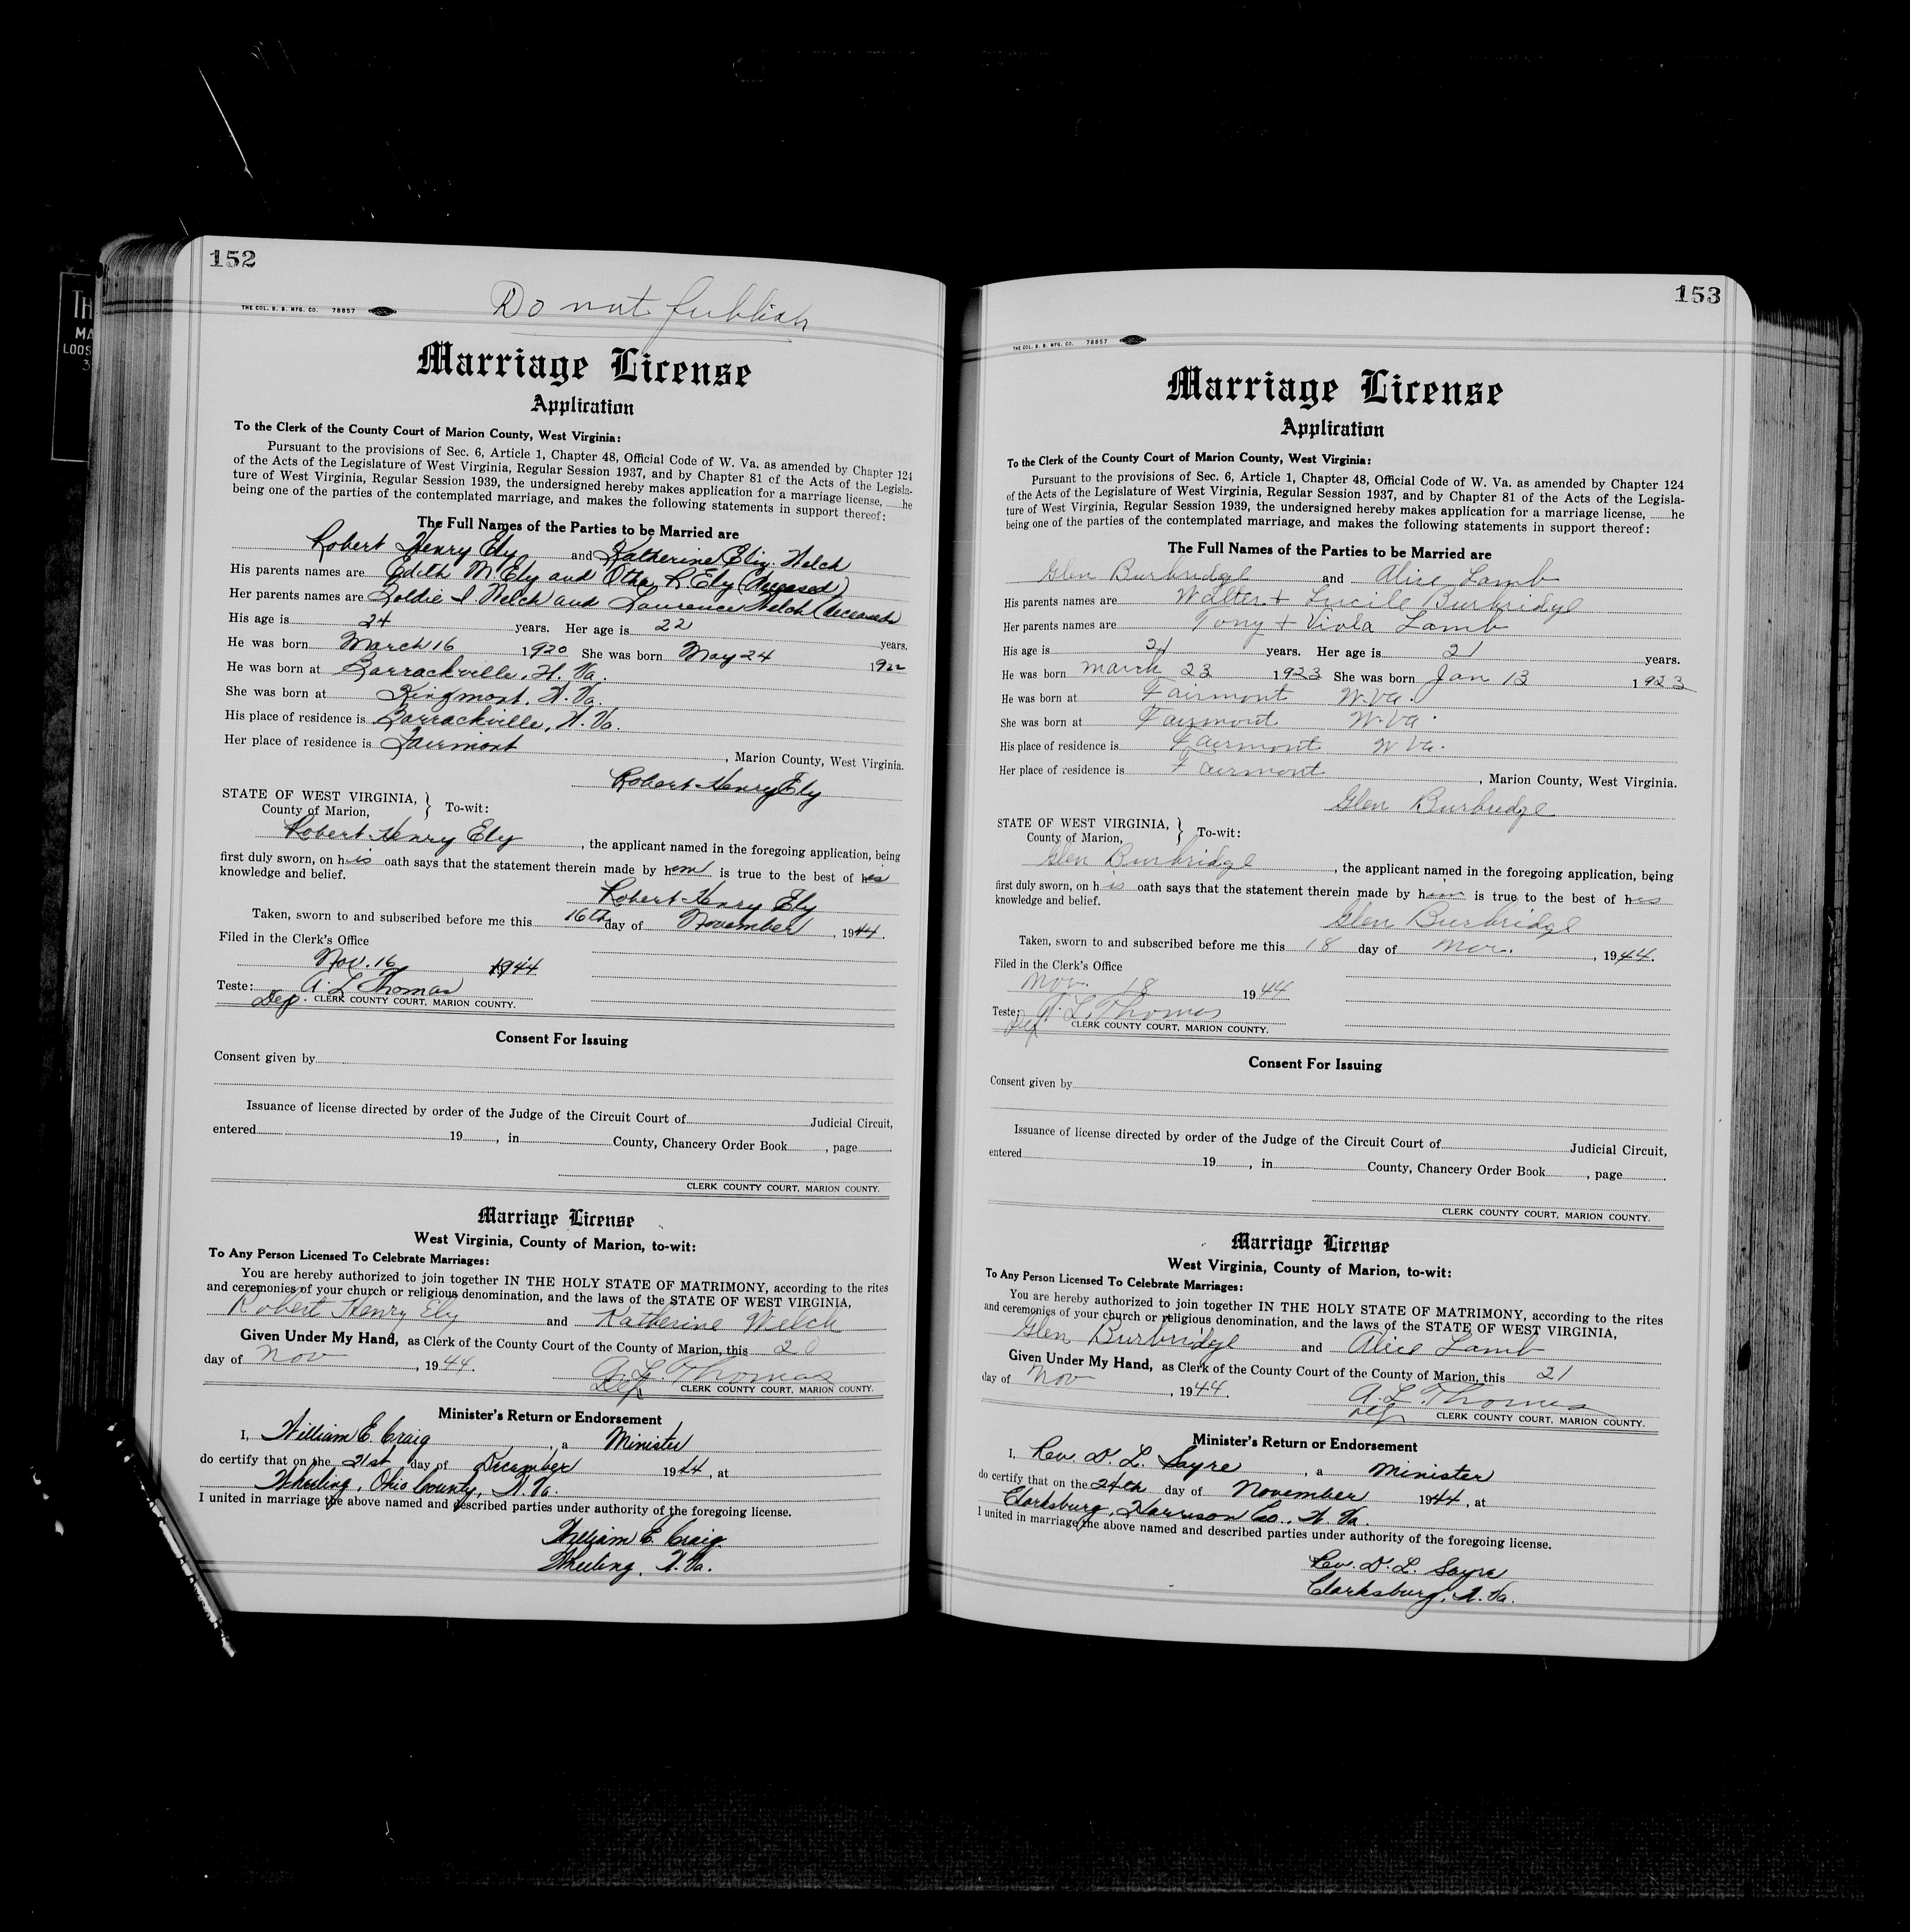 152
THE COL. B. B. MFG. CO. 78857
Do not publish
Marriage License
Application
To the Clerk of the County Court of Marion County, West Virginia:
Pursuant to the provisions of Sec. 6, Article 1, Chapter 48, Official Code of W. Va. as amended by Chapter 124
of the Acts of the Legislature of West Virginia, Regular Session 1937, and by Chapter 81 of the Acts of the Legisla-
ture of West Virginia, Regular Session 1939, the undersigned hereby makes application for a marriage license, ......he
being one of the parties of the contemplated marriage, and makes the following statements in support thereof:
The Full Names of the Parties to be Married are
Robert Henry Ely and Katherine Eliz. Welch
His parents names are Edith M Ely and Otha R. Ely (Deceased)
Her parents names are Goldie I Welch and Lawrence Welch (deceased)
His age is 24 years. Her age is 22 years.
He was born March 16 1920 She was born May 24 1922
He was born at Barrackville, W. Va.
She was born at Kingmont, W. Va.
His place of residence is Barrackville, W. Va.
Her place of residence is Fairmont, Marion County, West Virginia.
Robert Henry Ely
STATE OF WEST VIRGINIA,
County of Marion, } To-wit:
Robert Henry Ely, the applicant named in the foregoing application, being
first duly sworn, on his oath says that the statement therein made by him is true to the best of his
knowledge and belief.
Robert Henry Ely
Taken, sworn to and subscribed before me this 16th day of November, 1944.
Filed in the Clerk's Office
Nov. 16 1944
Teste: A. L Thomas
Dep. CLERK COUNTY COURT, MARION COUNTY.
Consent For Issuing
Consent given by
Issuance of license directed by order of the Judge of the Circuit Court of Judicial Circuit,
entered 19 , in County, Chancery Order Book , page
CLERK COUNTY COURT, MARION COUNTY.
Marriage License
West Virginia, County of Marion, to-wit:
To Any Person Licensed To Celebrate Marriages:
You are hereby authorized to join together IN THE HOLY STATE OF MATRIMONY, according to the rites
and ceremonies of your church or religious denomination, and the laws of the STATE OF WEST VIRGINIA,
Robert Henry Ely and Katherine Welch
Given Under My Hand, as Clerk of the County Court of the County of Marion, this 20
day of Nov, 1944. A. L. Thomas
Dep CLERK COUNTY COURT, MARION COUNTY.
Minister's Return or Endorsement
I, William E. Craig, a Minister
do certify that on the 21st day of December 1944, at
Wheeling, Ohio County, W. Va.
I united in marriage the above named and described parties under authority of the foregoing license.
William E. Craig
Wheeling, W. Va.
153
THE COL. B. B. MFG. CO. 78857
Marriage License
Application
To the Clerk of the County Court of Marion County, West Virginia:
Pursuant to the provisions of Sec. 6, Article 1, Chapter 48, Official Code of W. Va. as amended by Chapter 124
of the Acts of the Legislature of West Virginia, Regular Session 1937, and by Chapter 81 of the Acts of the Legisla-
ture of West Virginia, Regular Session 1939, the undersigned hereby makes application for a marriage license, ......he
being one of the parties of the contemplated marriage, and makes the following statements in support thereof:
The Full Names of the Parties to be Married are
Glen Burbridge and Alice Lamb
His parents names are Walter + Lucile Burbridge
Her parents names are Tony + Viola Lamb
His age is 21 years. Her age is 21 years.
He was born March 23 1923 She was born Jan 13 1923
He was born at Fairmont W. Va.
She was born at Fairmont W. Va.
His place of residence is Fairmont W Va.
Her place of residence is Fairmont, Marion County, West Virginia.
Glen Burbridge
STATE OF WEST VIRGINIA,
County of Marion, } To-wit:
Glen Burbridge, the applicant named in the foregoing application, being
first duly sworn, on his oath says that the statement therein made by him is true to the best of his
knowledge and belief.
Glen Burbridge
Taken, sworn to and subscribed before me this 18 day of Nov., 1944.
Filed in the Clerk's Office
Nov. 18 1944
Teste: A. L. Thomas
Dep CLERK COUNTY COURT, MARION COUNTY.
Consent For Issuing
Consent given by
Issuance of license directed by order of the Judge of the Circuit Court of Judicial Circuit,
entered 19 , in County, Chancery Order Book , page
CLERK COUNTY COURT, MARION COUNTY.
Marriage License
West Virginia, County of Marion, to-wit:
To Any Person Licensed To Celebrate Marriages:
You are hereby authorized to join together IN THE HOLY STATE OF MATRIMONY, according to the rites
and ceremonies of your church or religious denomination, and the laws of the STATE OF WEST VIRGINIA,
Glen Burbridge and Alice Lamb
Given Under My Hand, as Clerk of the County Court of the County of Marion, this 21
day of Nov, 1944. A. L. Thomas
Dep CLERK COUNTY COURT, MARION COUNTY.
Minister's Return or Endorsement
I, Rev. D. L. Sayre, a Minister
do certify that on the 24th day of November 1944, at
Clarksburg, Harrison Co., W. Va.
I united in marriage the above named and described parties under authority of the foregoing license.
Rev. D. L. Sayre
Clarksburg, W. Va.